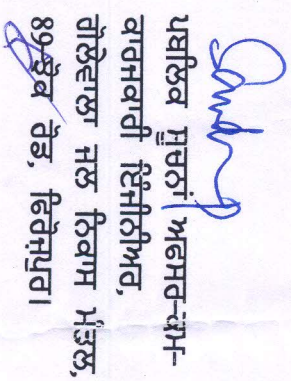 ਪਬਲਿਕ ਸੂਚਨਾਂ ਅਫਸਰ-ਕਮ-
ਕਾਰਜਕਾਰੀ ਇੰਜੀਨੀਅਰ,
ਗੋਲੇਵਾਲਾ ਜਲ ਨਿਕਾਸ ਮੰਡਲ,
89-ਕੂੱਕ ਰੋਡ, ਫਿਰੋਜ਼ਪੁਰ।